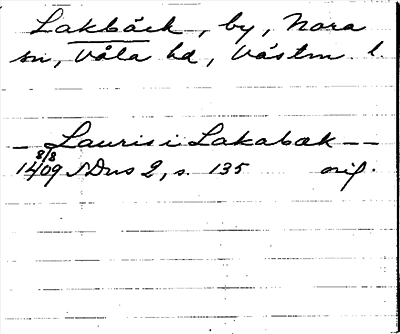 Lakbäck, by, Nora
sn, Våla hd, Västm. l.
– Lauris i Lakabæk – –
8/8 1409 SDns 2, s. 135 orig.